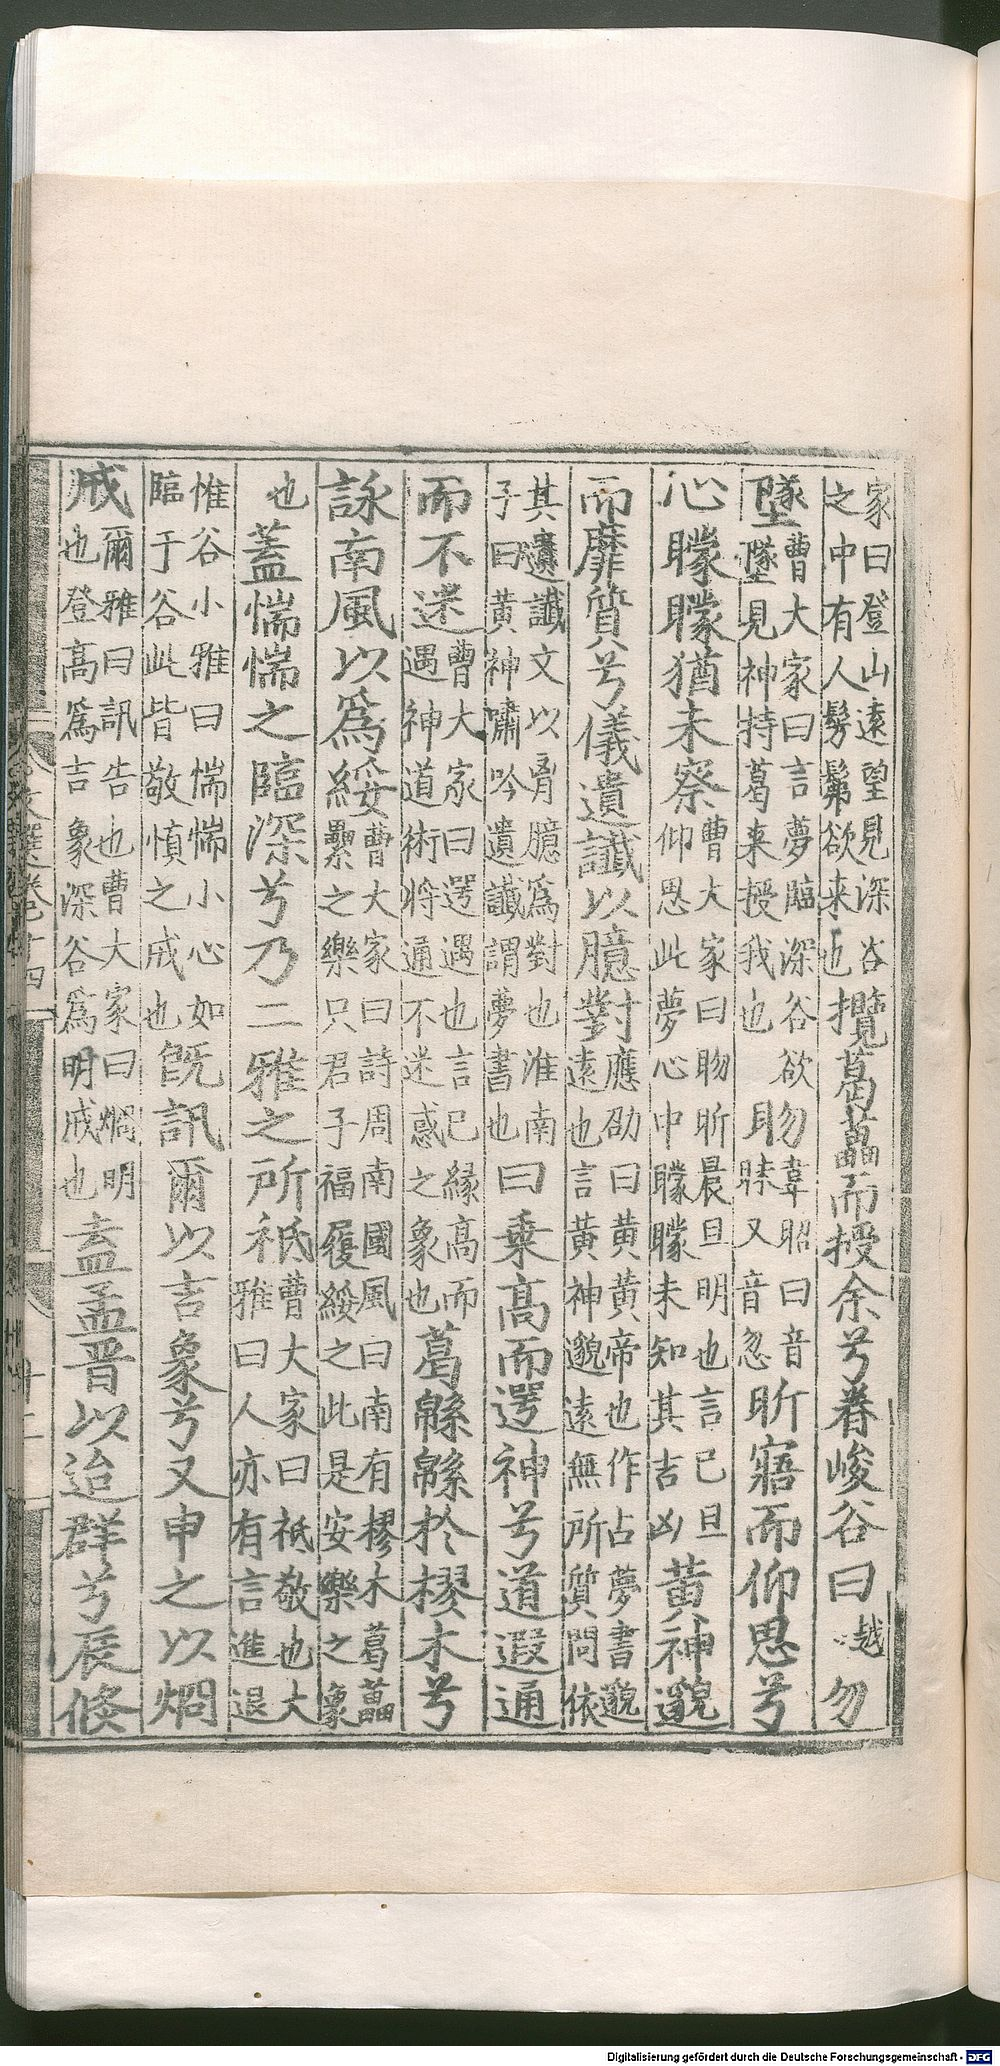 家曰登山遠望見深谷之中有人髣髴欲来也攬葛藟而授余兮眷峻谷曰越勿
墜曹大家曰言夢臨深谷欲墜見神持葛来授我也昒韋昭曰音昧又音忽昕寤而仰思兮
心矇矇猶未察曹大家曰昒昕晨旦明也言已旦仰思此夢心中矇矇未知其吉凶黄神邈
而靡質兮儀遺讖以臆對應劭曰黄黄帝也作占夢書邈遠也言黄神邈遠無所質問依
其遺讖文以胷臆為對也淮南子曰黄神嘯吟遺讖謂夢書也曰乗髙而遌神兮道遐通
而不迷曹大家曰遌遇也言已縁髙而遇神道術将通不迷惑之象也葛緜緜於樛木兮
詠南風以爲綏曹大家曰詩周南國風曰南有樛木葛藟纍之樂只君子福履綏之此是安樂之象
也蓋惴惴之臨深兮乃二雅之所祗曹大家曰祗敬也大雅曰人亦有言進退
惟谷小雅曰惴惴小心如臨于谷此皆敬慎之戒也旣訊爾以吉象兮又申之以烱
戒爾雅曰訊告也曹大家曰烱明也登髙爲吉象深谷爲明戒也盍孟晋以迨群兮辰倐
文選卷十四
十二
Digitalisierung gefördert durch die Deutsche Forschungsgemeinschaft - DFG